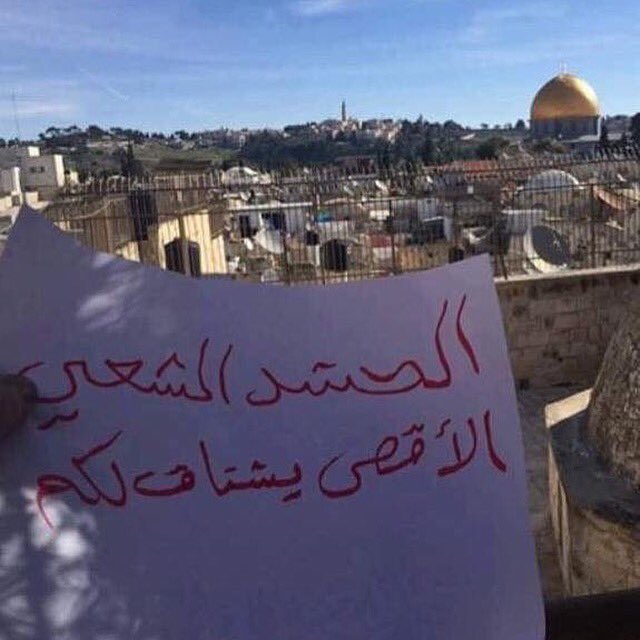 الحشد الشعبي
الأقصى يشتاق لكم